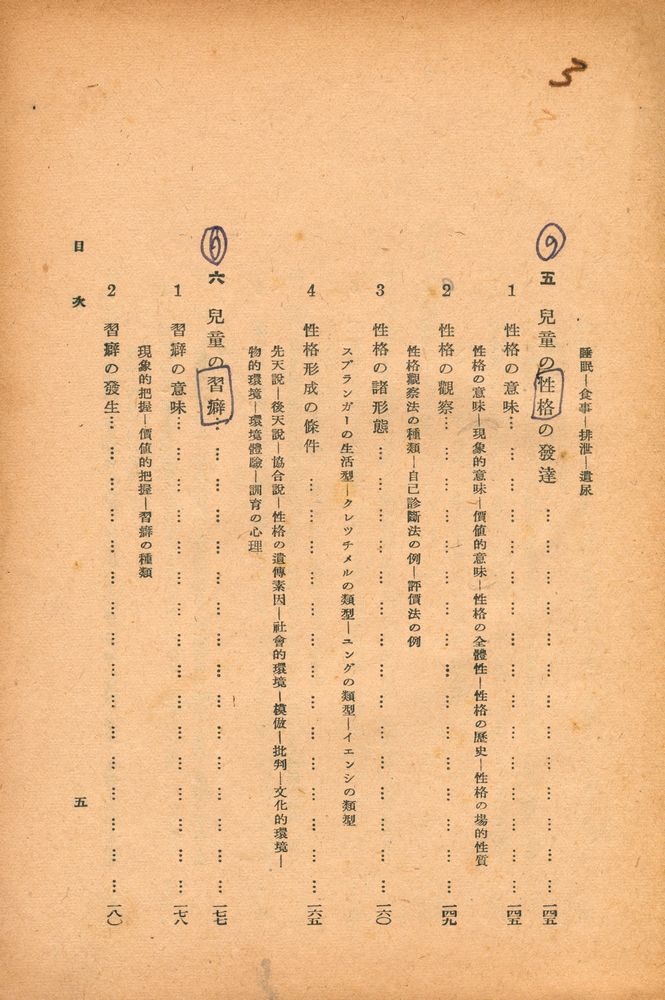 睡眠―食事―排泄―遺尿
五 兒童の性格の發達 … … … … … … … 一四五
1 性格の意味… … … … … … … … 一四五
性格の意味―現象的意味―價値的意味―性格の全體性―性格の歷史―性格の場的性質
2 性格の觀察… … … … … … … … 一四九
性格觀察法の種類―自己診斷法の例―評價法の例
3 性格の諸形態 … … … … … … … … 一六〇
スプランガーの生活型―クレツチメルの類型―ユングの類型―イエンシの類型
4 性格形成の條件 … … … … … … … 一六五
先天說―後天說―協合說―性格の遺傳素因―社會的環境―模倣―批判―文化的環境―
物的環境―環境體驗―調育の心理
六 兒童の習癖… … … … … … … … 一七七
1 習癖の意味… … … … … … … … 一七八
現象的把握―價値的把握―習癖の種類
2 習癖の發生… … … … … … … … 一八〇
目次
五